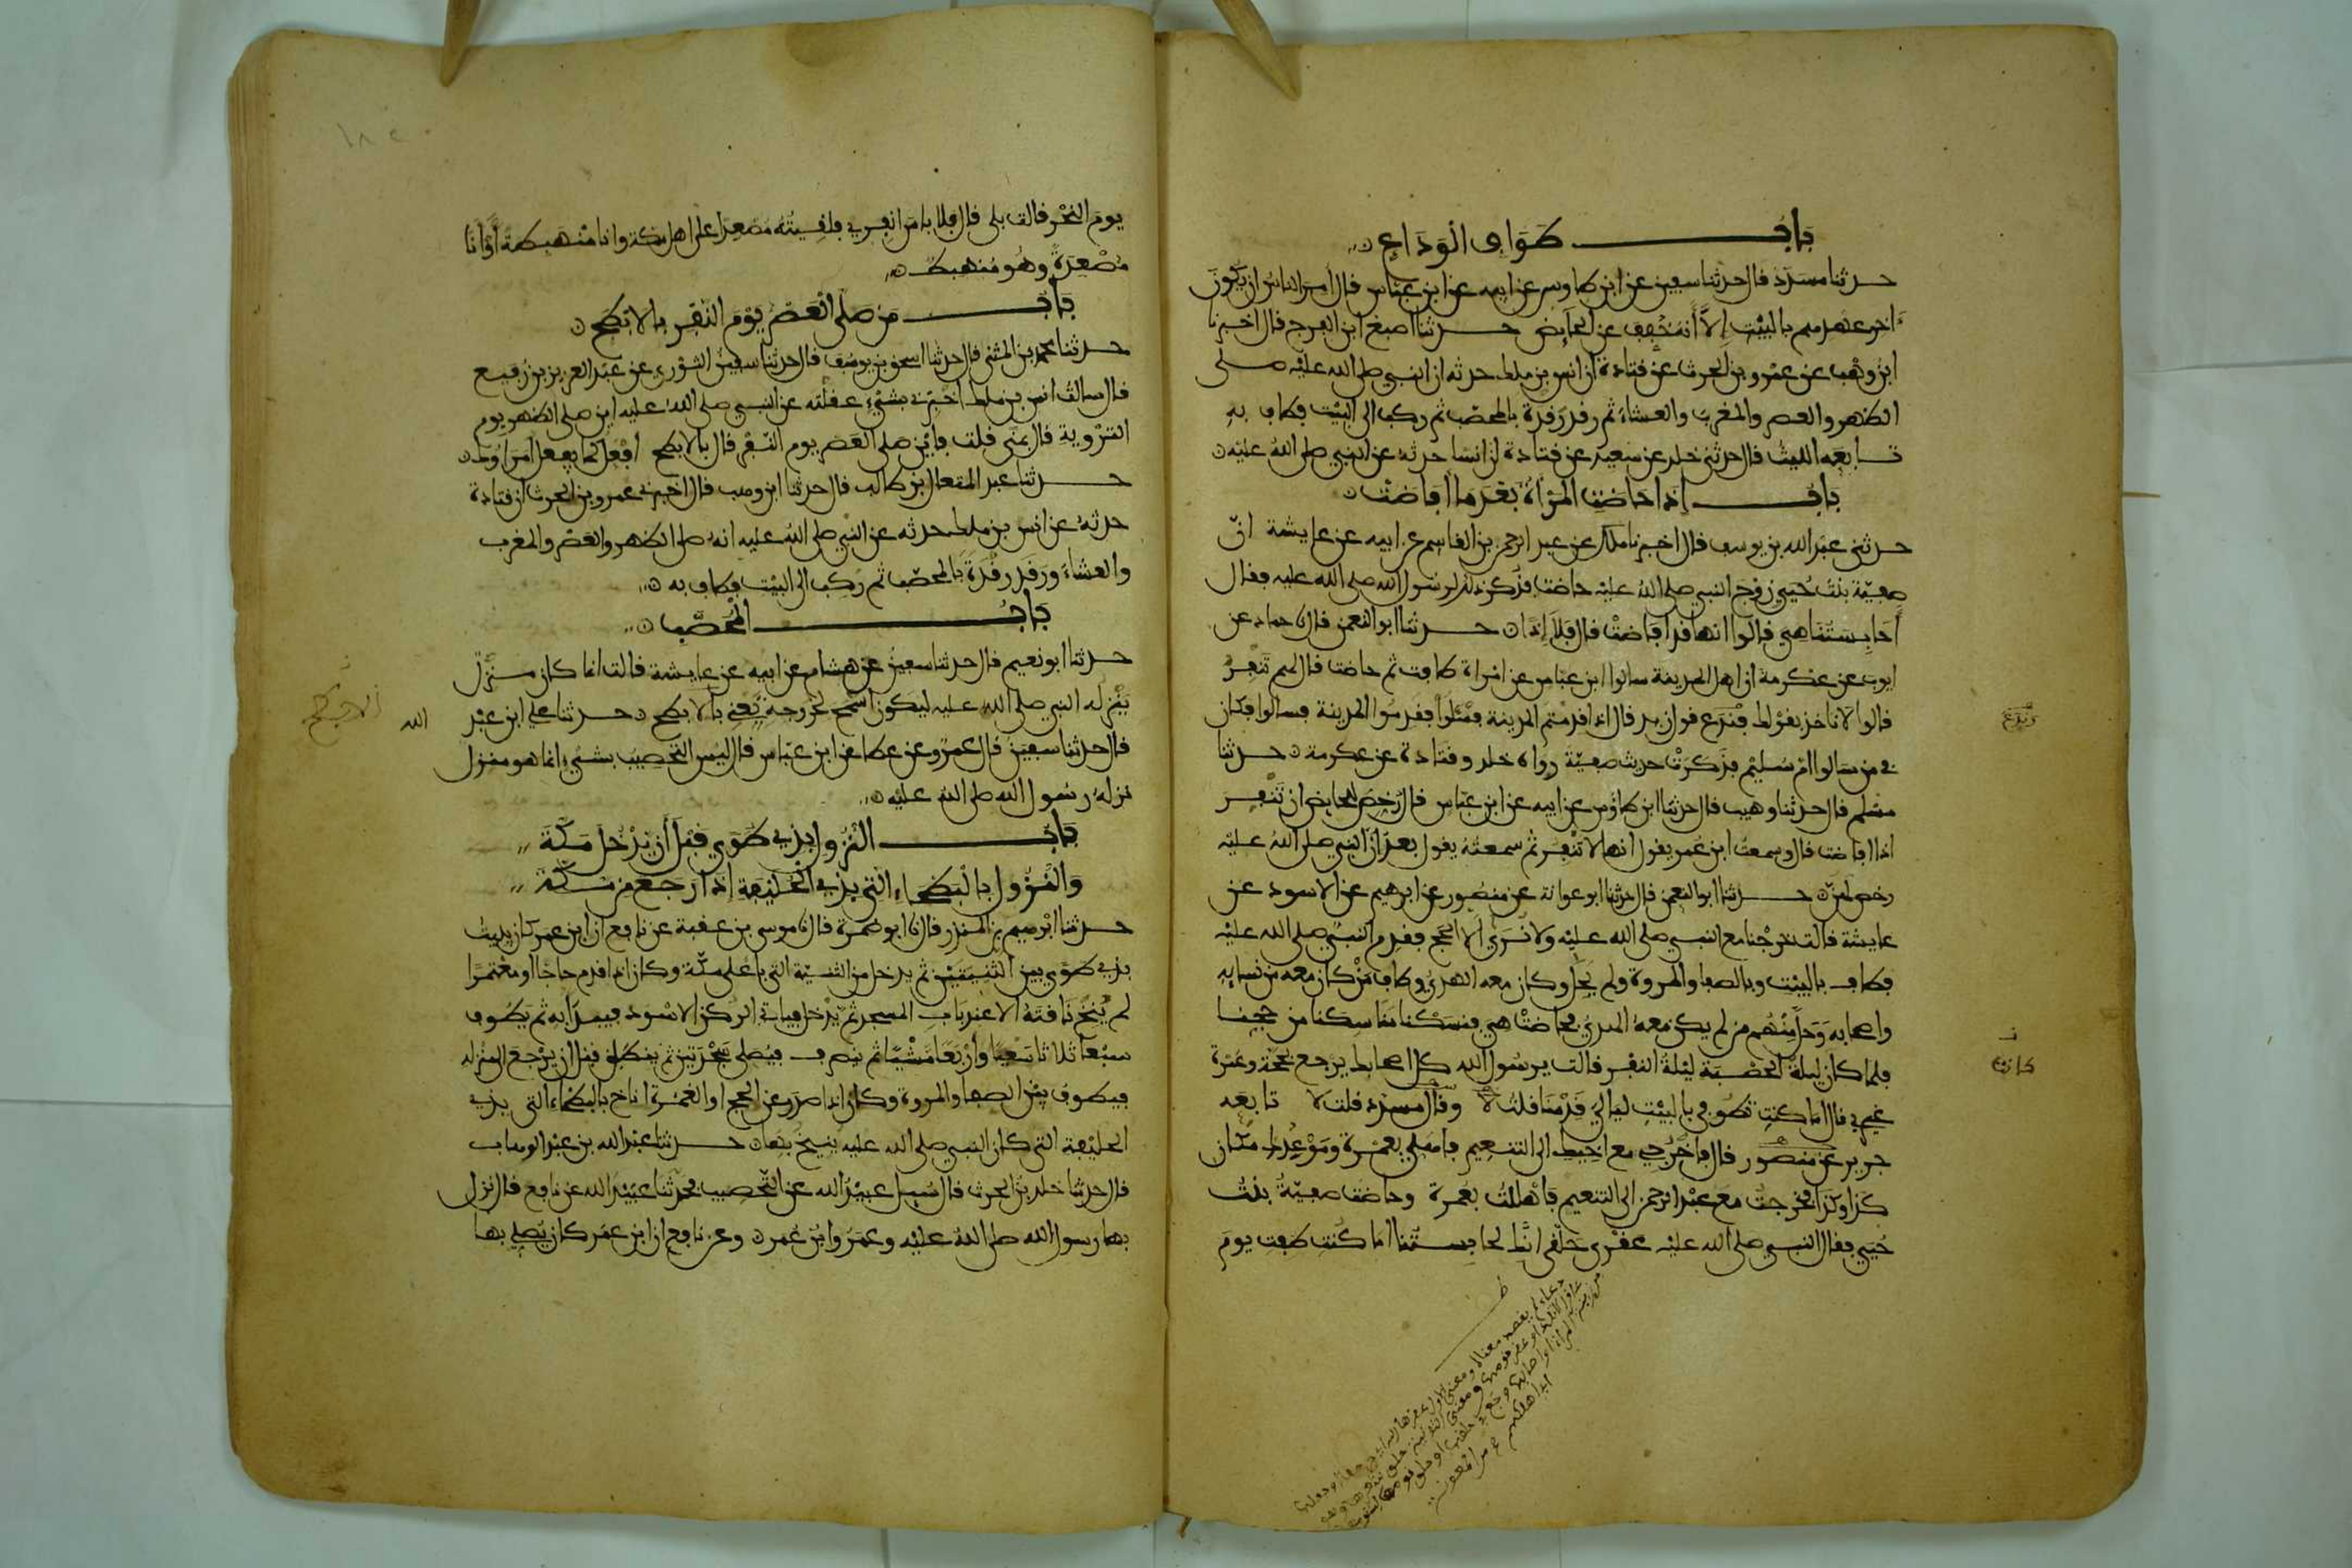 بَابُ طَوَافِ الْوَدَاعِ
حدثنا مسدد قال حدثنا سفين عن ابن طاوس عن ابيه عن ابن عباس قال امر الناس ان يكون
ءاخر عهدهم بالبيت إلا أنه خُفِّفَ عن الحائض حدثنا اصبغ ابن الفرج قال اخبرنا
ابن وهب عن عمرو بن الحرث عن قتادة ان انس بن ملك حدثه ان النبي صلى الله عليه صلى
الظهر والعصر والمغرب والعشاء ثم رقد رقدة بالمحصب ثم ركب الى البيت فطاف به
تابعه الليث قال حدثني خلد عن سعيد عن قتادة ان انسا حدثه عن النبي صلى الله عليه
بَابُ إذا حاضت المرأة بعد ما أفاضت
حدثني عبد الله بن يوسف قال اخبرنا ملك عن عبد الرحمن بن القاسم عن ابيه عن عايشة انّ
صفيّة بنت حُيي زوج النبي صلى الله عليه حاضت فذكر ذلك لرسول الله صلى الله عليه فقال
أحابستنا هي قالوا انها قد افاضت قال فلا إذا حدثنا ابو النعمن قال نا حماد عن
ايوب عن عكرمة ان اهل المدينة سالوا ابن عباس عن امراة طافت ثم حاضت قال لهم تنفر
قالوا لا ناخذ بقولك فندع قول زيد قال اذا قدمتم المدينة فسئلوا فقدموا المدينة فسالوا فكان
في من سالوا ام سليم فذكرت حديث صفيّة رواه خلد وقتادة عن عكرمة حدثنا
مسلم قال حدثنا وهيب قال حدثنا ابن طاوس عن ابيه عن ابن عباس قال رُخِّص للحايض ان تنفر
اذا افاضت قال وسمعت ابن عمر يقول انها لا تنفر ثم سمعته يقول بعد ان النبي صلى الله عليه
رخص لهن حدثنا ابو النعمن قال حدثنا ابو عوانة عن منصور عن ابرهيم عن الاسود عن
عايشة قالت خرجنا مع النبي صلى الله عليه ولا نرى الا الحج فقدم النبي صلى الله عليه
فطاف بالبيت وبالصفا والمروة ولم يحل وكان معه الهدي وطاف من كان معه من نسايه
واصحابه وحل منهم من لم يكن معه الهدي فحاضت هي فنسكنا مناسكنا من حجنا
فلما كان ليلة الحصبة ليلة النفر قالت يرسول الله كل اصحابك يرجع بحجة وعمرة
غيري قال اما كنت تطوفي بالبيت ليالي قدمنا قلت لا وقال مسدد قلت لا تابعه
جرير عن منصور قال فاخرجي مع اخيك الى التنعيم فاهلي بعمرة وموعدك مكان
كذا وكذا فخرجت مع عبد الرحمن الى التنعيم فاهللت بعمرة وحاضت صفيّة بنت
حُيي فقال النبي صلى الله عليه عقرى حلقى انك لحابستنا اما كنت طفت يوم
وندع
كانت
يوم النحر قالت بلى قال فلا باس انفري فلقيته مصعدا على اهل مكة وانا منهبطة أو أنا
مصعدة وهو منهبط
بَابُ من صلى العصر يوم النفر بالابطح
حدثنا محمد بن المثنى قال حدثنا اسحق بن يوسف قال حدثنا سفين الثوري عن عبد العزيز بن رفيع
قال سالت انس بن ملك اخبرني بشيء عقلته عن النبي صلى الله عليه اين صلى الظهر يوم
التروية قال بمنى قلت فاين صلى العصر يوم النفر قال بالابطح افعل كما يفعل امراؤك
حدثنا عبد المتعال بن طالب قال حدثنا ابن وهب قال اخبرني عمرو بن الحرث ان قتادة
حدثه عن انس بن ملك حدثه عن النبي صلى الله عليه انه صلى الظهر والعصر والمغرب
والعشاء ورقد رقدة بالمحصّب ثم ركب الى البيت فطاف به
بَابُ المحصّب
حدثنا ابو نعيم قال حدثنا سفين عن هشام عن ابيه عن عايشة قالت انما كان منزل
ينزله النبي صلى الله عليه ليكون اسمح لخروجه يعني بالابطح حدثنا علي ابن عبد الله
قال حدثنا سفين قال عمرو عن عطا عن ابن عباس قال ليس التحصيب بشيء انما هو منزل
نزله رسول الله صلى الله عليه
بَابُ النزول بذي طوى قبل أن يدخل مكة
والنزول بالبطحاء التي بذي الحليفة إذا رجع من مكة
حدثنا ابرهيم بن المنذر قال نا ابو ضمرة قال نا موسى بن عقبة عن نافع ان ابن عمر كان يبيت
بذي طوى بين الثنيتين ثم يدخل من الثنية التي باعلى مكة وكان اذا قدم حاجا او معتمرا
لم ينخ ناقته الا عند باب المسجد ثم يدخل فياتي الركن الاسود فيبدا به ثم يطوف
سبعا ثلاثا سعيا وأربعا مشيا ثم ينصرف فيصلي سجدتين ثم ينطلق قبل ان يرجع الى منزله
فيطوف بين الصفا والمروة وكان اذا صدر عن الحج او العمرة اناخ بالبطحاء التي بذي
الحليفة التي كان النبي صلى الله عليه ينيخ بها حدثنا عبد الله بن عبد الوهاب
قال حدثنا خلد بن الحرث قال سُيل عبيد الله عن التحصيب فحدثنا عبيد الله عن نافع قال نزل
بها رسول الله صلى الله عليه وعمر وابن عمر وعن نافع ان ابن عمر كان يصلي بها